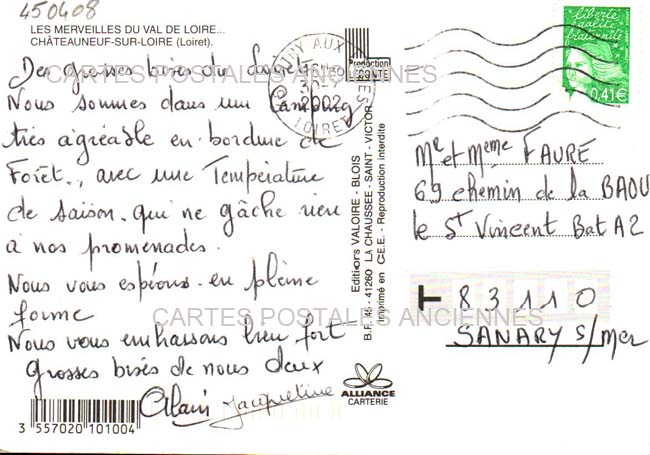 450408
LES MERVEILLES DU VAL DE LOIRE...
CHÂTEAUNEUF-SUR-LOIRE (Loiret).
Des grosses bises du Loiret
Nous sommes dans un Camping
très agréable en bordure de
Forêt., avec une Température
de saison qui ne gâche rien
à nos promenades.
Nous vous espérons en pleine
forme
Nous vous embrassons bien fort
grosses bises de nous deux
Alain Jacqueline
3 557020 101004
CARTES POSTALES ANCIENNES
CARTES POSTALES ANCIENNES
AUX
2002
LOIRET
Production
Editions VALOIRE - BLOIS
B.F. 45 - 41260 LA CHAUSSEE - SAINT - VICTOR
Imprimé en C.E.E. - Reproduction interdite
ALLIANCE
CARTERIE
liberté
égalité
fraternité
0,41€
Mr et Meme FAURE
69 chemin de la BAOU
le St Vincent Bat A2
T 83110
SANARY S/Mer